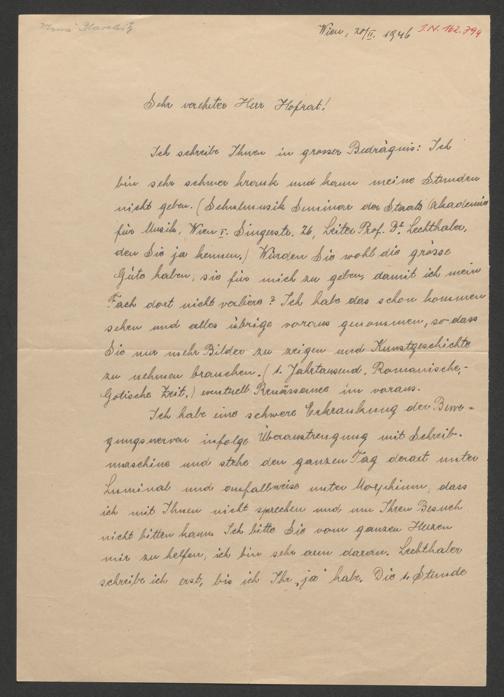 Wien, 20/II. 1946
I.N. 162.794
Sehr verehrter Herr Hofrat!
Ich schreibe Ihnen in grosser Bedrägnis: Ich
bin sehr schwer krank und kann meine Stunden
nicht geben. (Schulmusik Seminar der Staats Akademie
für Musik, Wien I. Singerstr. 26, Leiter Prof. Dr. Lechthaler,
den Sie ja kennen.) Würden Sie wohl die grosse
Güte haben, sie für mich zu geben, damit ich mein
Fach dort nicht verliere? Ich habe das schon kommen
sehen und alles übrige voraus genommen, so dass
Sie nur mehr Bilder zu zeigen und Kunstgeschichte
zu nehmen brauchen. (1. Jahrtausend, Romanische,-
Gotische Zeit,) eventuell Renässance im voraus.
Ich habe eine schwere Erkrankung der Bewe-
gungsnerven infolge Überanstrengung mit Schreib-
maschine und stehe den ganzen Tag derart unter
Luminal und anfallweise unter Morphium, dass
ich mit Ihnen nicht sprechen und um Ihren Besuch
nicht bitten kann. Ich bitte Sie vom ganzen Herzen
mir zu helfen, ich bin sehr arm daran. Lechthaler
schreibe ich erst, bis ich Ihr „ja" habe. Die 1. Stunde